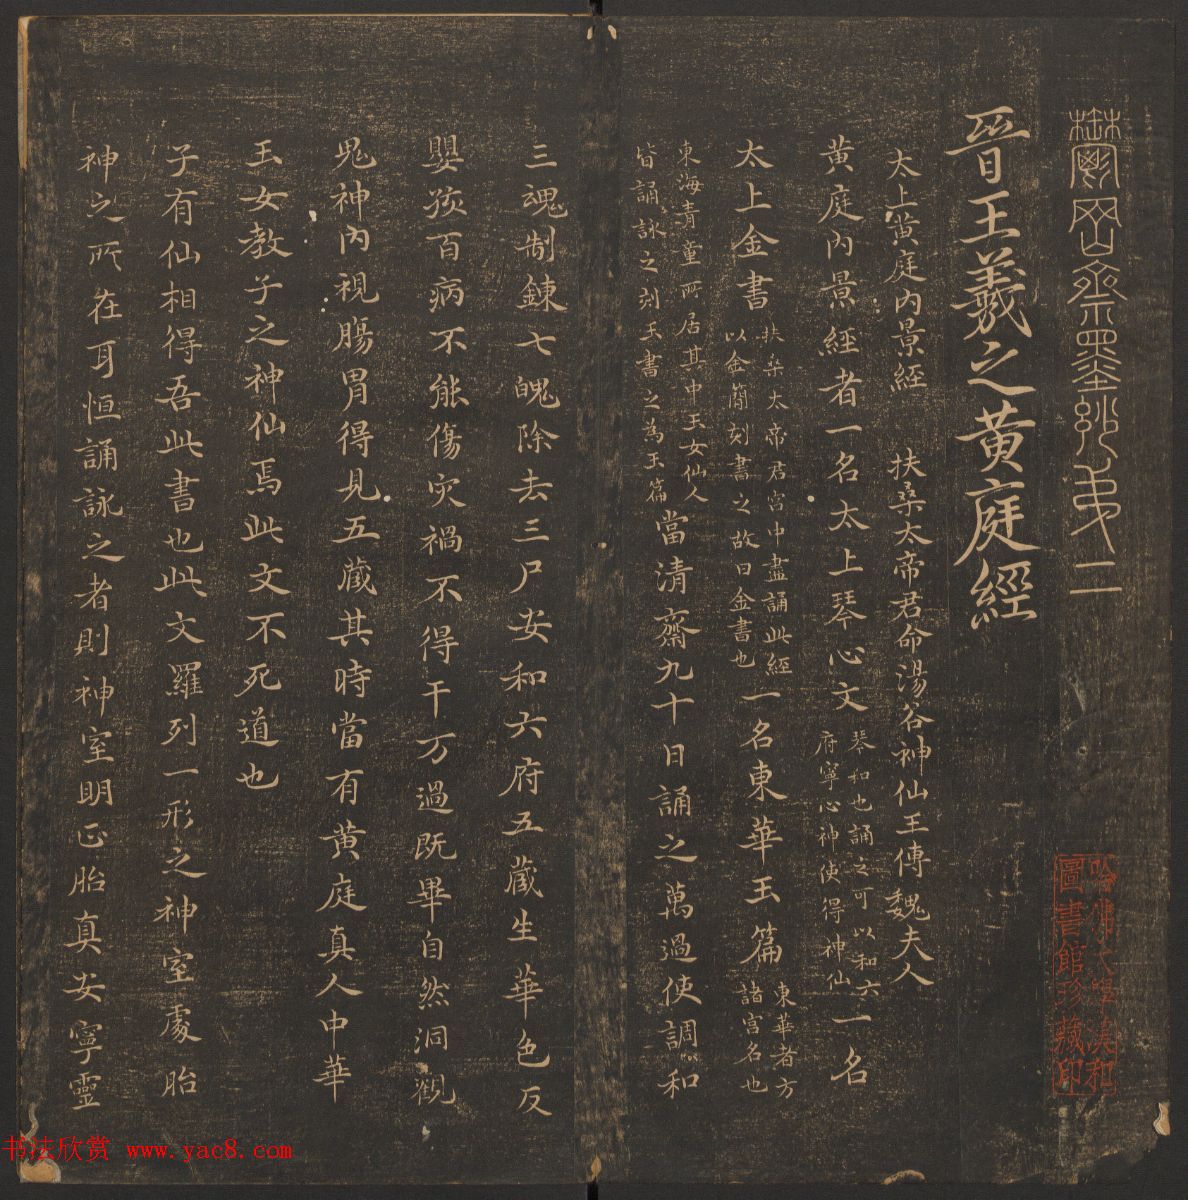 鬱岡齋墨玅弟二
晉王羲之黄庭經
太上黄庭内景經 扶桑太帝君命湯谷神仙王傳魏夫人
黄庭内景經者一名太上琴心文琴和也誦之可以和六府寧心神使得神仙一名
太上金書扶桑太帝君宫中盡誦此經以金簡刻書之故曰金書也一名東華玉篇東華者方諸宫名也
東海青童所居其中玉女仙人皆誦詠之刻玉書之為玉篇當清齋九十日誦之萬過使調和
三魂制鍊七魄除去三尸安和六府五藏生華色反
嬰孩百病不能傷灾禍不得干万過既畢自然洞觀
鬼神内視腸胃得見五藏其時當有黄庭真人中華
玉女教子之神仙焉此文不死道也
子有仙相得吾此書也此文羅列一形之神室處胎
神之所在耳恒誦詠之者則神室明正胎真安寧靈
哈佛大學漢和
圖書館珍藏印
书法欣赏 www.yac8.com